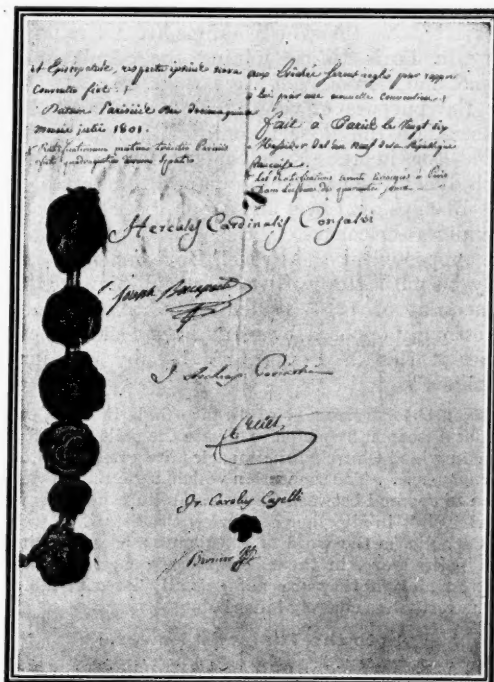 et Episcopatuum, respectu ipsius nova
Conventio fiet. †
Datum Parisiis die
mensis julii 1801.
Ratificationum
fiet quadraginta
aux Evêchés seront réglés par rapport
à lui par une nouvelle Convention. †
fait à Paris le vingt six
Messidor de l'an neuf de la République
française.
† Les Ratifications seront échangées à Paris
dans l'espace de quarante jours
Hercules Cardinalis Consalvi
Joseph Bonaparte
J. Archiep. Corinthi
Cretet
fr. Carolus Caselli
Bernier